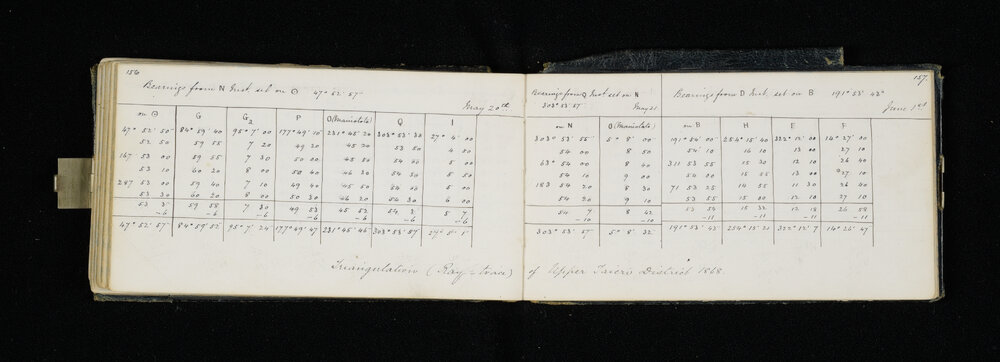 156
Bearings from N Inst. set on O 47° 52' 57"
May 20th
on O G G2 P O (Maniototo) Q I
47° 52' 50" 84° 59' 40 95° 7' 00 177° 49' 10" 231° 45' 20 303° 53' 30 27° 4' 00
52 50 59 55 7 20 49 20 45 20 53 50 4 50
167 53 00 59 55 7 30 50 00 45 50 54 20 5 00
53 10 60 20 8 00 50 40 46 20 54 30 5 50
287 53 00 59 40 7 10 49 40 45 50 54 00 5 00
53 30 60 20 8 00 50 30 46 20 54 30 6 00
53 3 59 58 7 30 49 53 45 52 54 3 5 7
-6 -6 -6 -6 -6 -6 -6
47° 52' 57" 84° 59' 52" 95° 7' 24" 177° 49' 47 231° 45' 46" 303° 53' 57" 27° 5' 1"
157
Bearings from Q Inst set on N
303° 53' 57"
May 21
on N O (Maniototo)
303° 53' 55" 5° 8' 00
54 00 8 50
63° 54 00 8 40
54 10 9 00
183 54 20 8 30
54 20 9 10
54 7 8 42
-10 -10
303° 53' 57" 5° 8' 32
Bearings from D Inst. set on B 191° 53' 43"
June 1st
on B H E F
191° 54' 00" 254° 15' 40 322° 12' 00 14° 27' 00
54 15 16 10 13 00 27 10
311 53 55 15 30 12 10 26 40
54 00 15 55 13 00 27 10
71 53 25 14 55 11 30 26 40
53 55 15 00 12 10 27 10
53 54 15 32 12 18 26 58
-11 -11 -11 -11
191° 53' 43" 254° 15' 21 322° 12' 7 14° 26' 47
Triangulation (Ray-trace) of Upper Taieri District 1868.